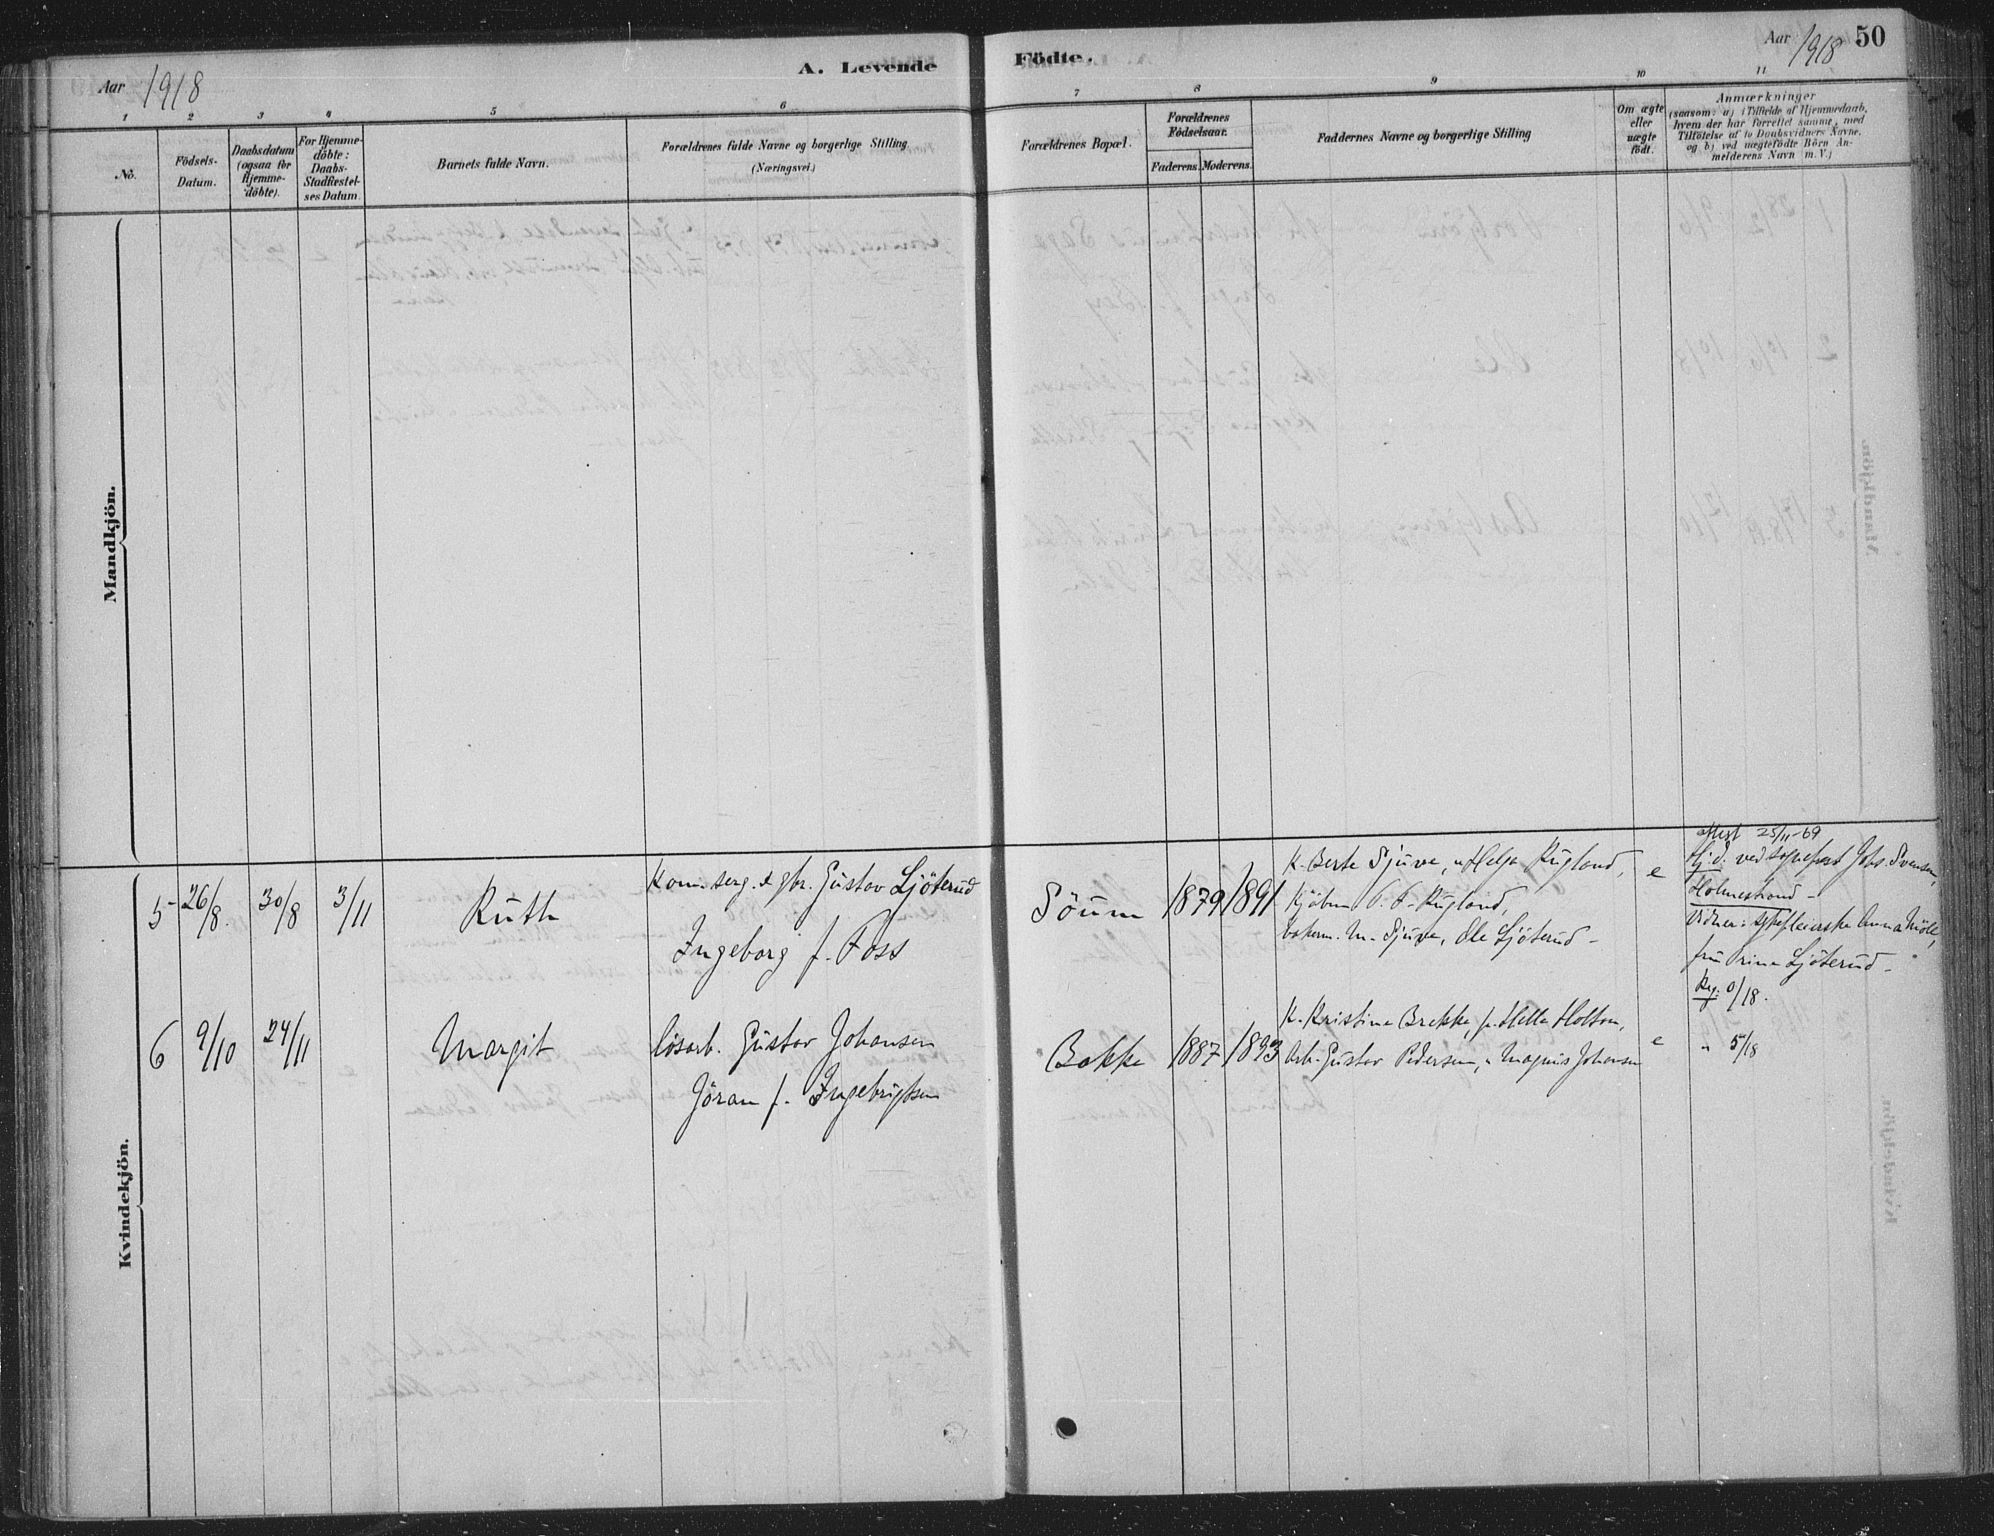 Aar 1918
A. Levende
Födte.
Aar 1918 50
1 2 3 4 5 6 7 8 9 10 11
No.
Födsels-
Datum.
Daabsdatum
(ogsaa for
Hjemme-
döbte).
For Hjemme-
döbte:
Daabs-
Stadfæstel-
ses Datum.
Barnets fulde Navn.
Forældrenes fulde Navne og borgerlige Stilling
(Næringsvei.)
Forældrenes Bopæl.
Forældrenes
Födselsaar.
Faderens. Moderens.
Faddernes Navne og borgerlige Stilling
Om ægte
eller
uægte
født.
Anmærkninger
(saasom: a) i Tilfælde af Hjemmedaab,
hvem der har forrettet samme, med
Tilföielse af to Daabsvidners Navne,
og b) ved uægtefödte Börn An-
melderens Navn m. V.)
Mandkjön.
Kvindekjön.
5 26/8. 30/8 3/11 Ruth
Kom. serg. & gbr. Gustav Ljöterud
Ingeborg f. Foss
Söum 1879 1891
K. Berte Sjuve, " Helga Rugland,
Kjöbm. Rugland,
M. Sjuve, Ole Ljöterud -
e
attest 25/11-69
Hj. d. ved sogneprest Johs. Svensen,
Holmestrand -
Vidner: sykepleierske Anna
fru Trine Ljöterud -
Reg. 0/18.
6 9/10 24/11 Margit
lösarb. Gustav Johansen
Jöran f. Ingebrigtsen
Bakke 1887 1893
K. Kristine Brekke, p. Hella Holtan,
Arb. Gustav Pedersen, " Magnus Johansen
e
" 5/18